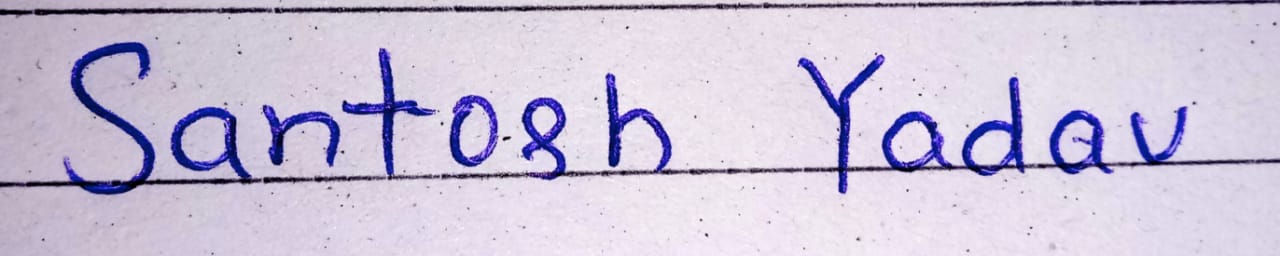 Santosh Yadav